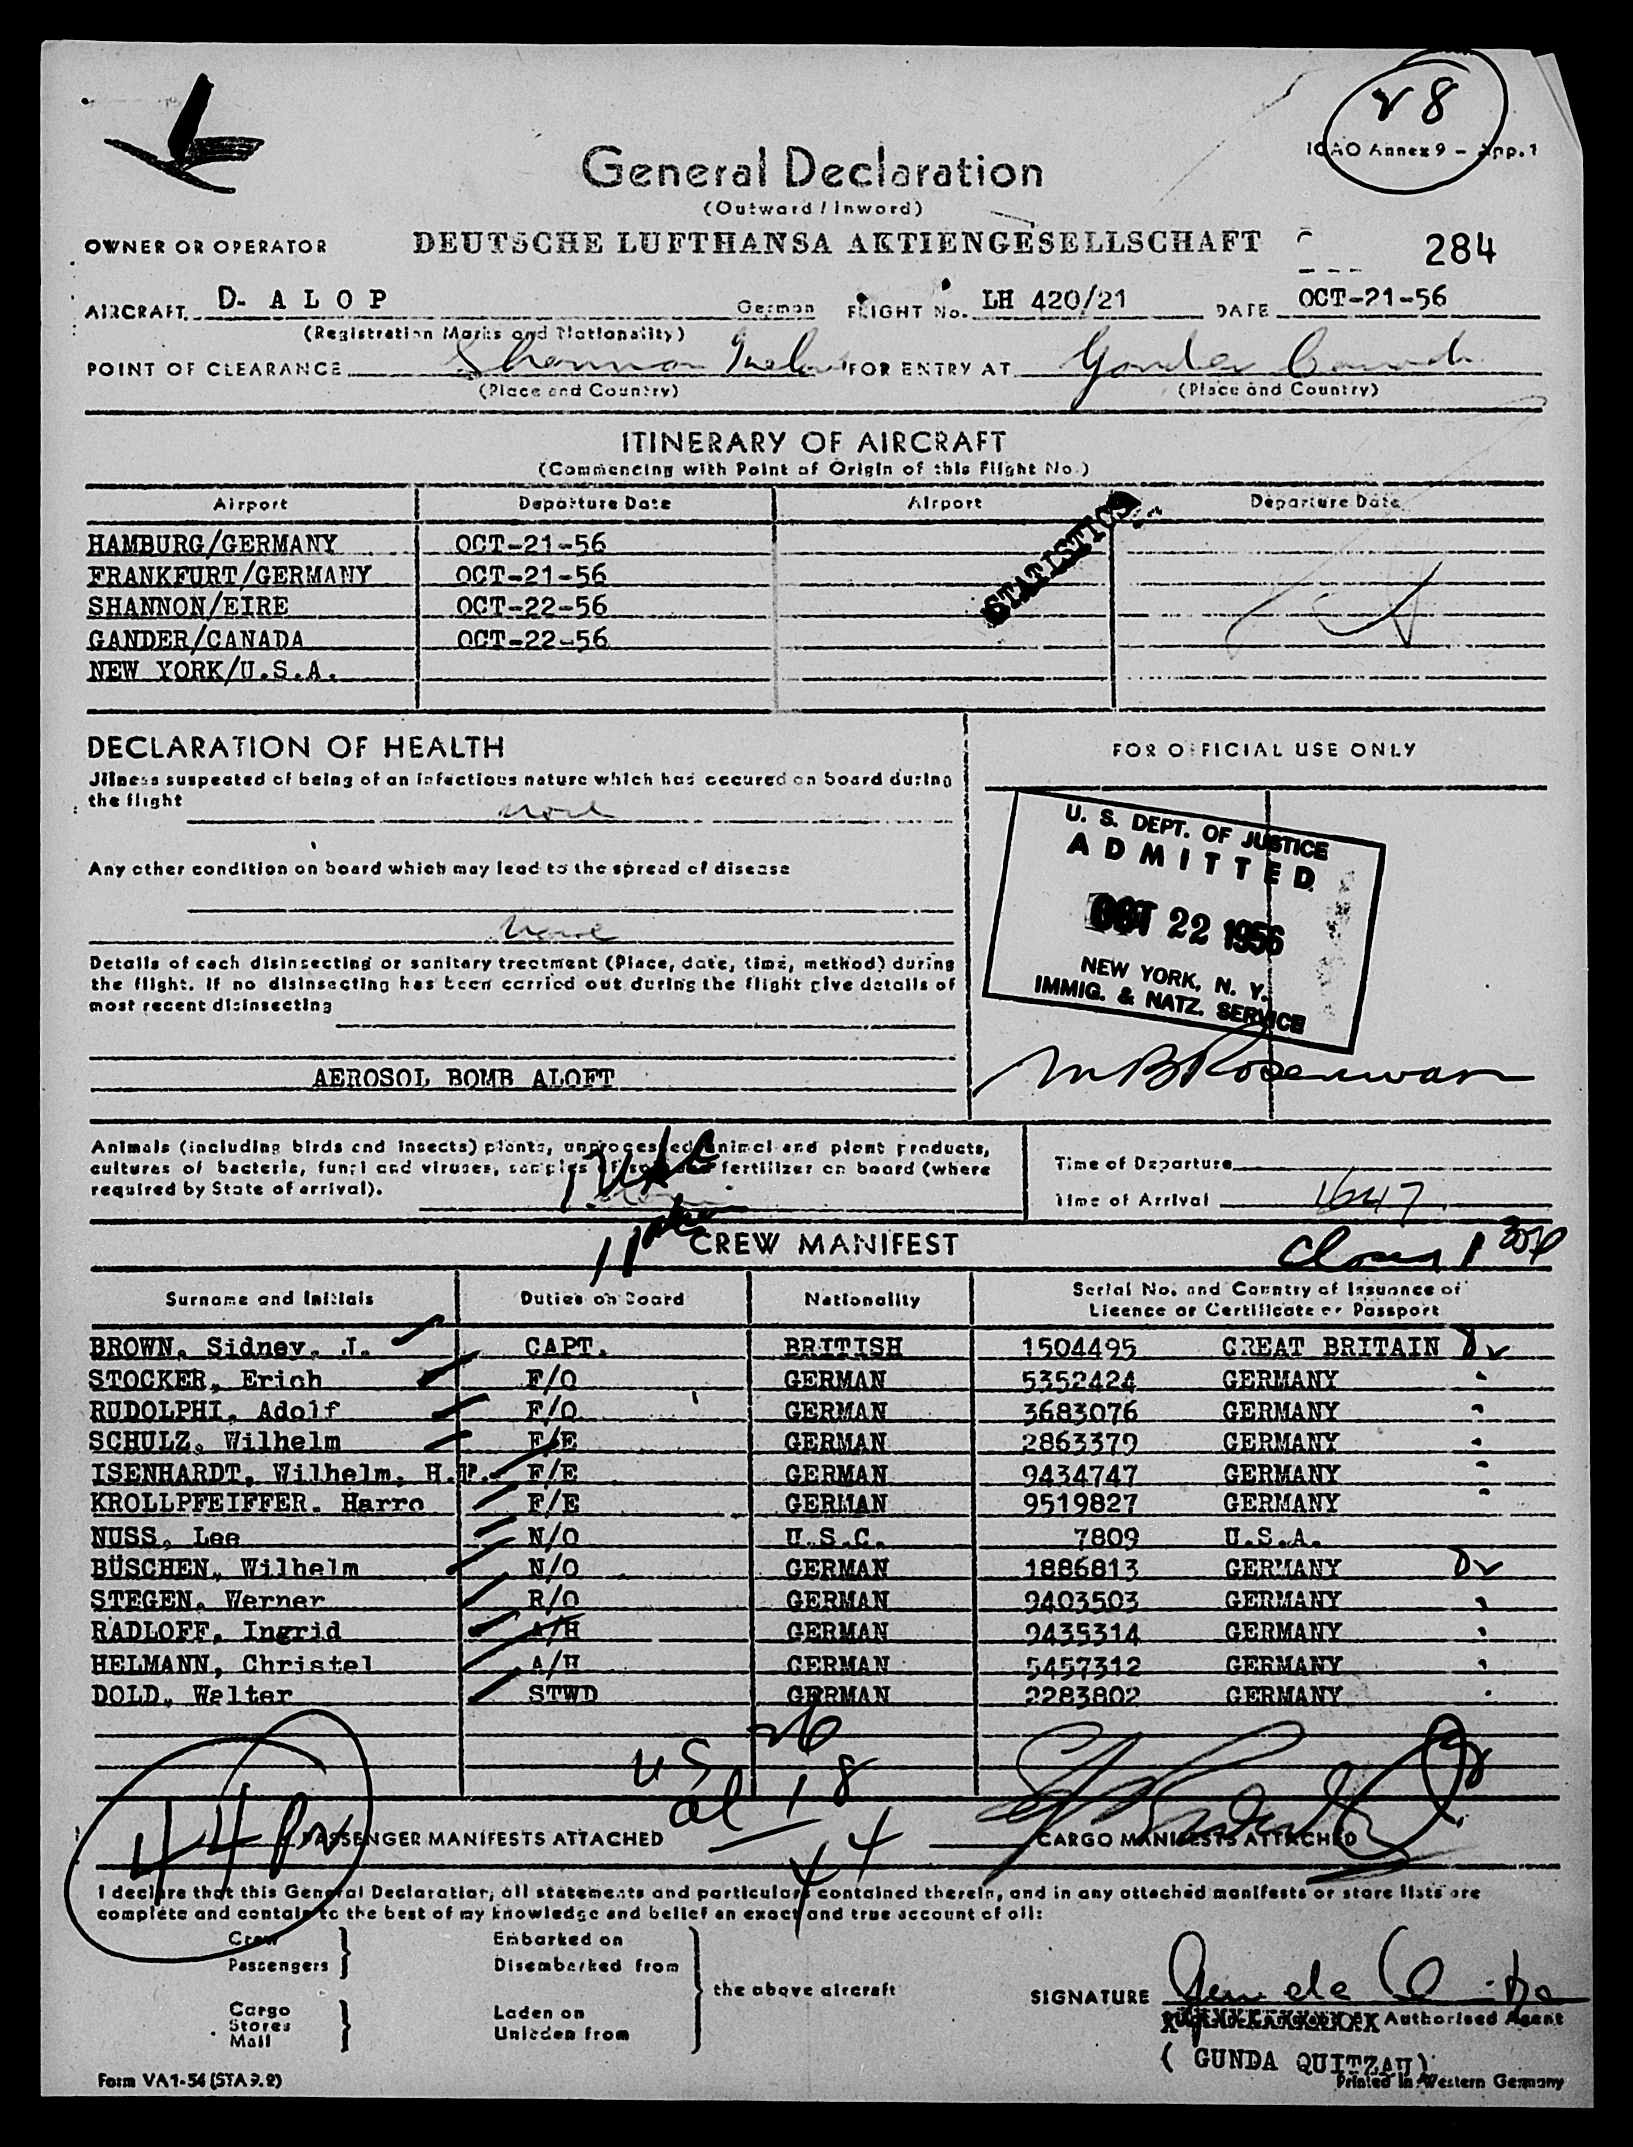 28
ICAO Annex 9 – App. 1
General Declaration
(Outward / Inward)
OWNER OR OPERATOR DEUTSCHE LUFTHANSA AKTIENGESELLSCHAFT 284
AIRCRAFT D- A L O P German FLIGHT No. LH 420/21 DATE OCT-21-56
(Registration Marks and Nationality)
POINT OF CLEARANCE Shannon Ireland FOR ENTRY AT Gander Canada
(Place and Country) (Place and Country)
ITINERARY OF AIRCRAFT
(Commencing with Point of Origin of this Flight No.)
Airport Departure Date Airport Departure Date
STATISTICS
HAMBURG/GERMANY OCT-21-56
FRANKFURT/GERMANY OCT-21-56
SHANNON/EIRE OCT-22-56
GANDER/CANADA OCT-22-56
NEW YORK/U.S.A.
DECLARATION OF HEALTH
Jllness suspected of being of an infectious nature which has occured on board during
the flight none
Any other condition on board which may lead to the spread of disease
none
Details of each disinsecting or sanitary treatment (Place, date, time, method) during
the flight. If no disinsecting has been carried out during the flight give details of
most recent disinsecting
AEROSOL BOMB ALOFT
FOR OFFICIAL USE ONLY
U. S. DEPT. OF JUSTICE
ADMITTED
OCT 22 1956
NEW YORK, N. Y.
IMMIG. & NATZ. SERVICE
M B Rosenwasr
Animals (including birds and insects) plants, unprocessed animal and plant products,
cultures of bacteria, fungi and viruses, samples of soil and fertilizer on board (where
required by State of arrival).
Time of Departure
Time of Arrival 1647
CREW MANIFEST
Surname and Initials Duties on Board Nationality Serial No. and Country of Issuance of
Licence or Certificate or Passport
BROWN, Sidney, J. CAPT. BRITISH 1504495 GREAT BRITAIN
STOCKER, Erich F/O GERMAN 5352424 GERMANY
RUDOLPHI, Adolf F/O GERMAN 3683076 GERMANY
SCHULZ, Wilhelm F/E GERMAN 2863379 GERMANY
ISENHARDT, Wilhelm, H.P. F/E GERMAN 9434747 GERMANY
KROLLPFEIFFER, Harro F/E GERMAN 9519827 GERMANY
NUSS, Lee N/O U.S.C. 7809 U.S.A.
BÜSCHEN, Wilhelm N/O GERMAN 1886813 GERMANY
STEGEN, Werner R/O GERMAN 9403503 GERMANY
RADLOFF, Ingrid A/H GERMAN 9435314 GERMANY
HELMANN, Christel A/H GERMAN 5457312 GERMANY
DOLD, Walter STWD GERMAN 2283802 GERMANY
US 26
al 18
44
PASSENGER MANIFESTS ATTACHED CARGO MANIFESTS ATTACHED
I declare that this General Declaration, all statements and particulars contained therein, and in any attached manifests or store lists are
complete and contain to the best of my knowledge and belief an exact and true account of all:
Crew Embarked on
Passengers Disembarked from
the above aircraft
Cargo Laden on
Stores
Mail Unladen from
SIGNATURE
Authorised Agent
( GUNDA QUITZAU )
Form VA1-56 (STA 9.2) Printed in Western Germany